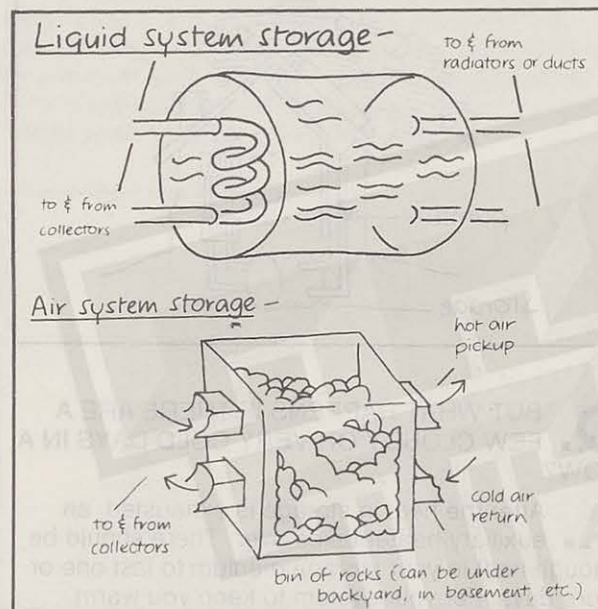 Liquid system storage -
to & from
radiators or ducts
to & from
collectors
Air system storage -
hot air
pickup
cold air
return
to & from
collectors
bin of rocks (can be under
backyard, in basement, etc.)